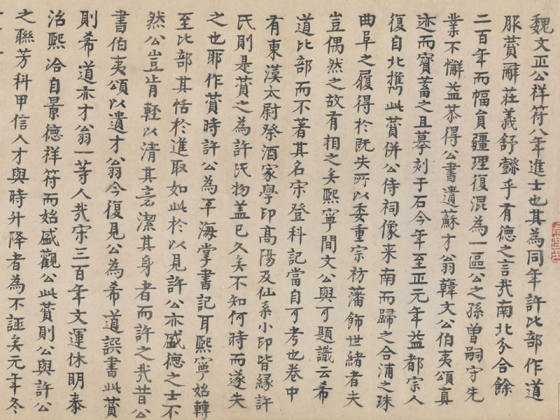 魏文正公祥符八年進士也其為同年許比部作道
服贊辭莊義舒藹乎有德之言哉南北分合餘
二百年而幅員疆理復混為一區公之孫曾嗣守先
業不懈益恭得公書遺蘇才翁韓文公伯夷頌真
迹而寳蓄之且摹刻于石今年至正元年益都宗人
復自北擕此贊併公侍祠像来南而歸之合浦之珠
曲阜之履得於既失所以委重宗祊藩飾世緒者夫
豈偶然之故有相之矣熙寧間文公與可題識云希
道比部而不著其名宋登科記當自可考也卷中
有東漢太尉祭酒家學印高陽及仙系小印皆緣許
氏則是贊之為許氏物盖已久矣不知何時而遂失
之也耶作贊時許公為平海掌書記耳熙寧始轉
至比部其恬於進取如此於以見許公亦盛德之士不
然公豈肯輕以清其意潔其身者而許之哉昔公
書伯夷頌以遺才翁今復見公為希道譔書此贊
則希道亦才翁一等人哉宋三百年文運休明泰
治熙洽自景德祥符而始盛觀公此贊則公與許公
之聯芳科甲信人才與時升降者為不誣矣元年冬